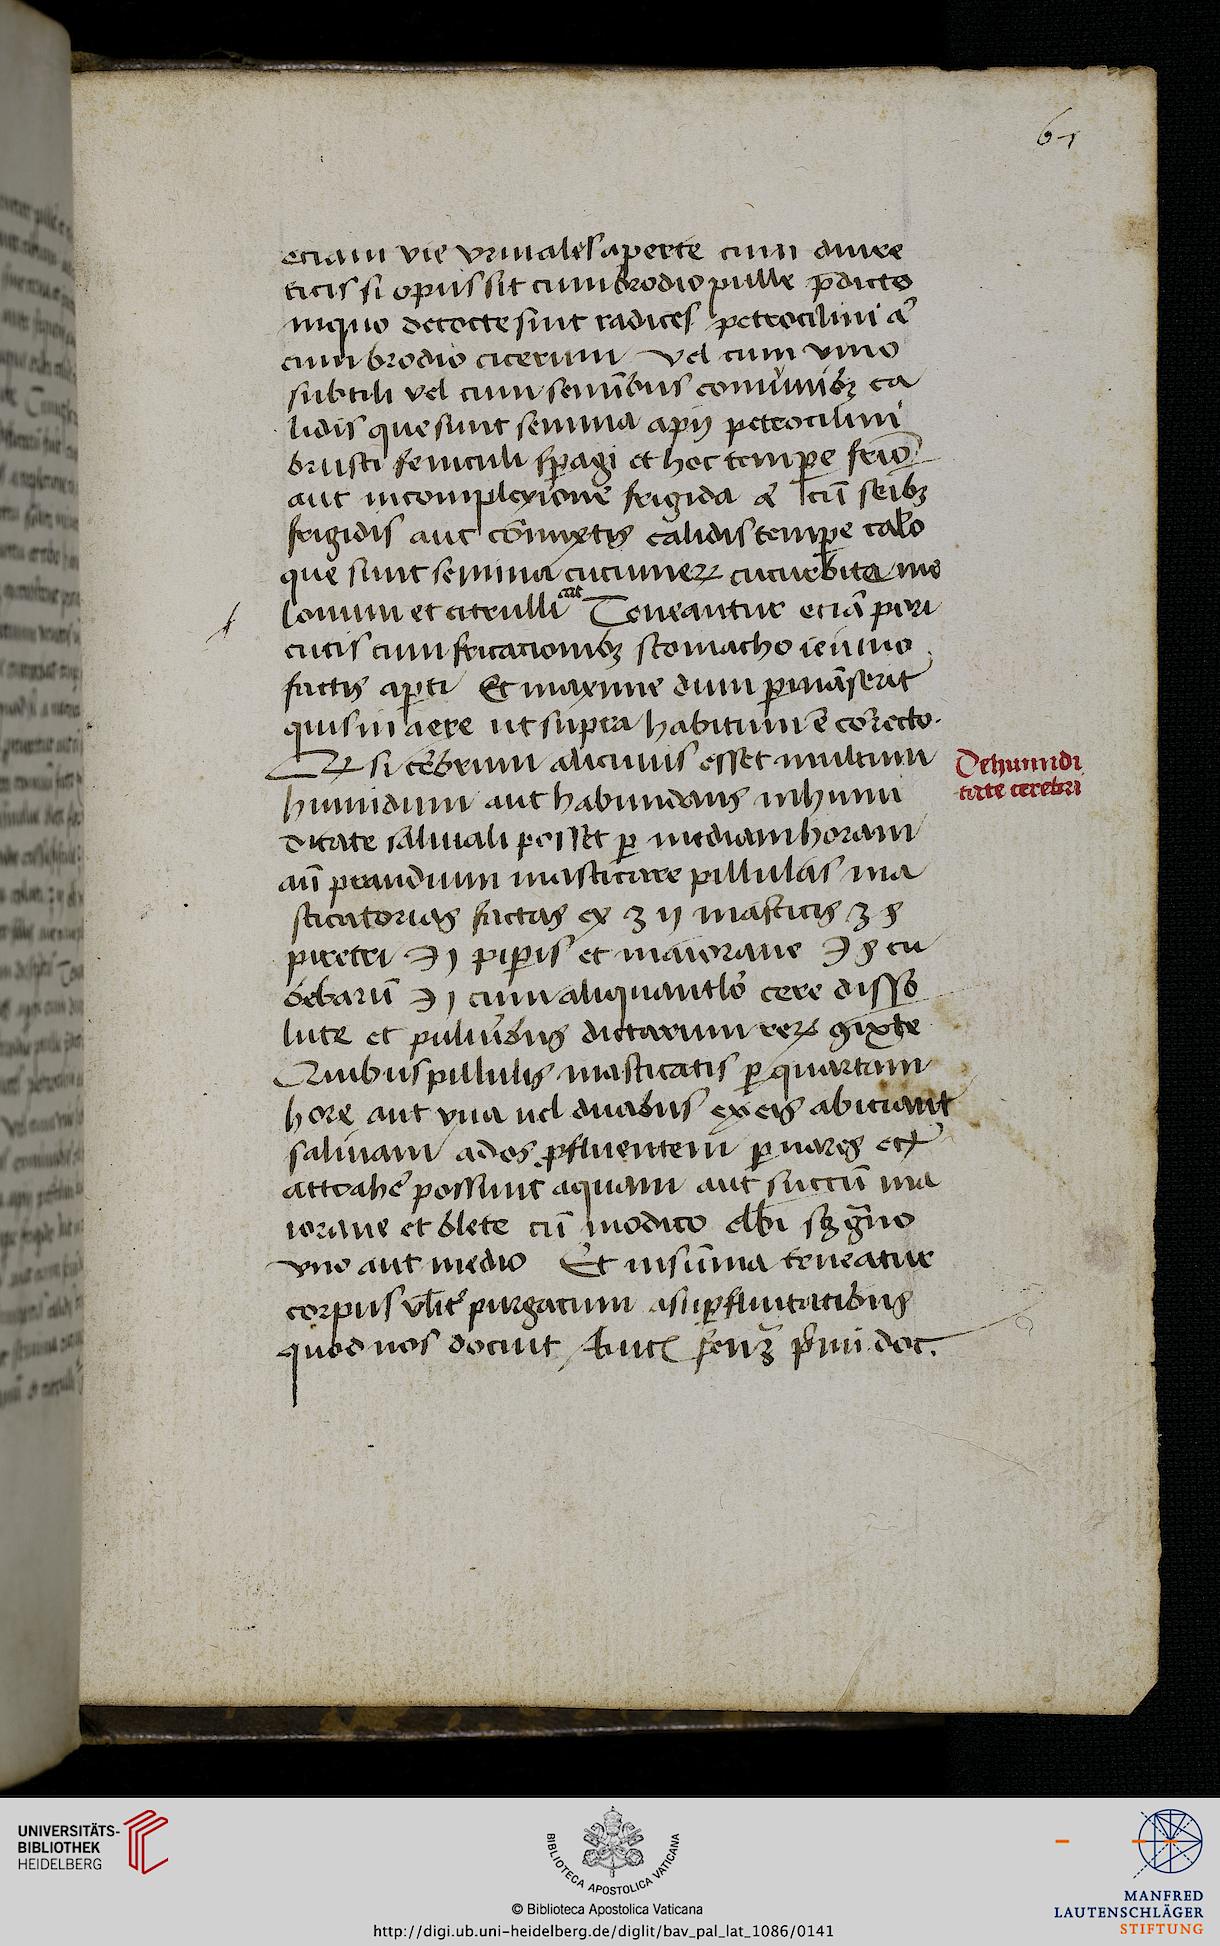 61
eciam vie vrinales aperte cum diure
ticis si opus sit cum brodio pulle p̄dicto
in quo decocte sint radices petrocilini aƈ
cum brodio cicerum vel cum vino
subtili vel cum semīnbus comūnibꝫ ca
lidis que sunt semina apij petrocilini
brusci feniculi sꝑagi et hoc tempe frīo
aut in complexione frigida & cū seībꝫ
frigidis aut cōmixtis calidis tempe calo
que sunt semina cucumeꝝ cucurbita me
lonum et citrulli aut Teneantur eciā pori
cutis cum fricationibꝫ stomacho ieiuno
factis apti Et maxime dum ꝑmāserit
quis in aere ut supra habitum ē corecto.
Qꝫ si cēbrum alicuius esset multum
humidum aut habundans in humi
ditate saliuali posset ꝑ mediam horam
añ prandium masticare pillulas ma
sticatorias factas ex ʒ ij masticis ʒ ß
piretri ℈ j piꝑis et maiorane ℈ ß cu
bebarū ℈ j cum aliquantlō cere disso
lute et puluībus dictarum reꝝ ꝯmixte
Quibus pillulis masticatis ꝑ quartam
hore aut vna uel duabus ex eis abiciant
saliuam ad os ꝓfluentem ꝑ nares etc
attrahē possunt aquam aut succū ma
iorane et blete cū modico elbi sꝫ gͣno
vno aut medio Et in sūma teneatur
corpus vlīt purgatum a suꝑfluitatibus
quod nos docuit Auic fenꝫ pͥmi doc.
De humidi
tate cerebri
UNIVERSITÄTS-
BIBLIOTHEK
HEIDELBERG
BIBLIOTECA APOSTOLICA VATICANA
© Biblioteca Apostolica Vaticana
http://digi.ub.uni-heidelberg.de/diglit/bav_pal_lat_1086/0141
MANFRED
LAUTENSCHLÄGER
STIFTUNG